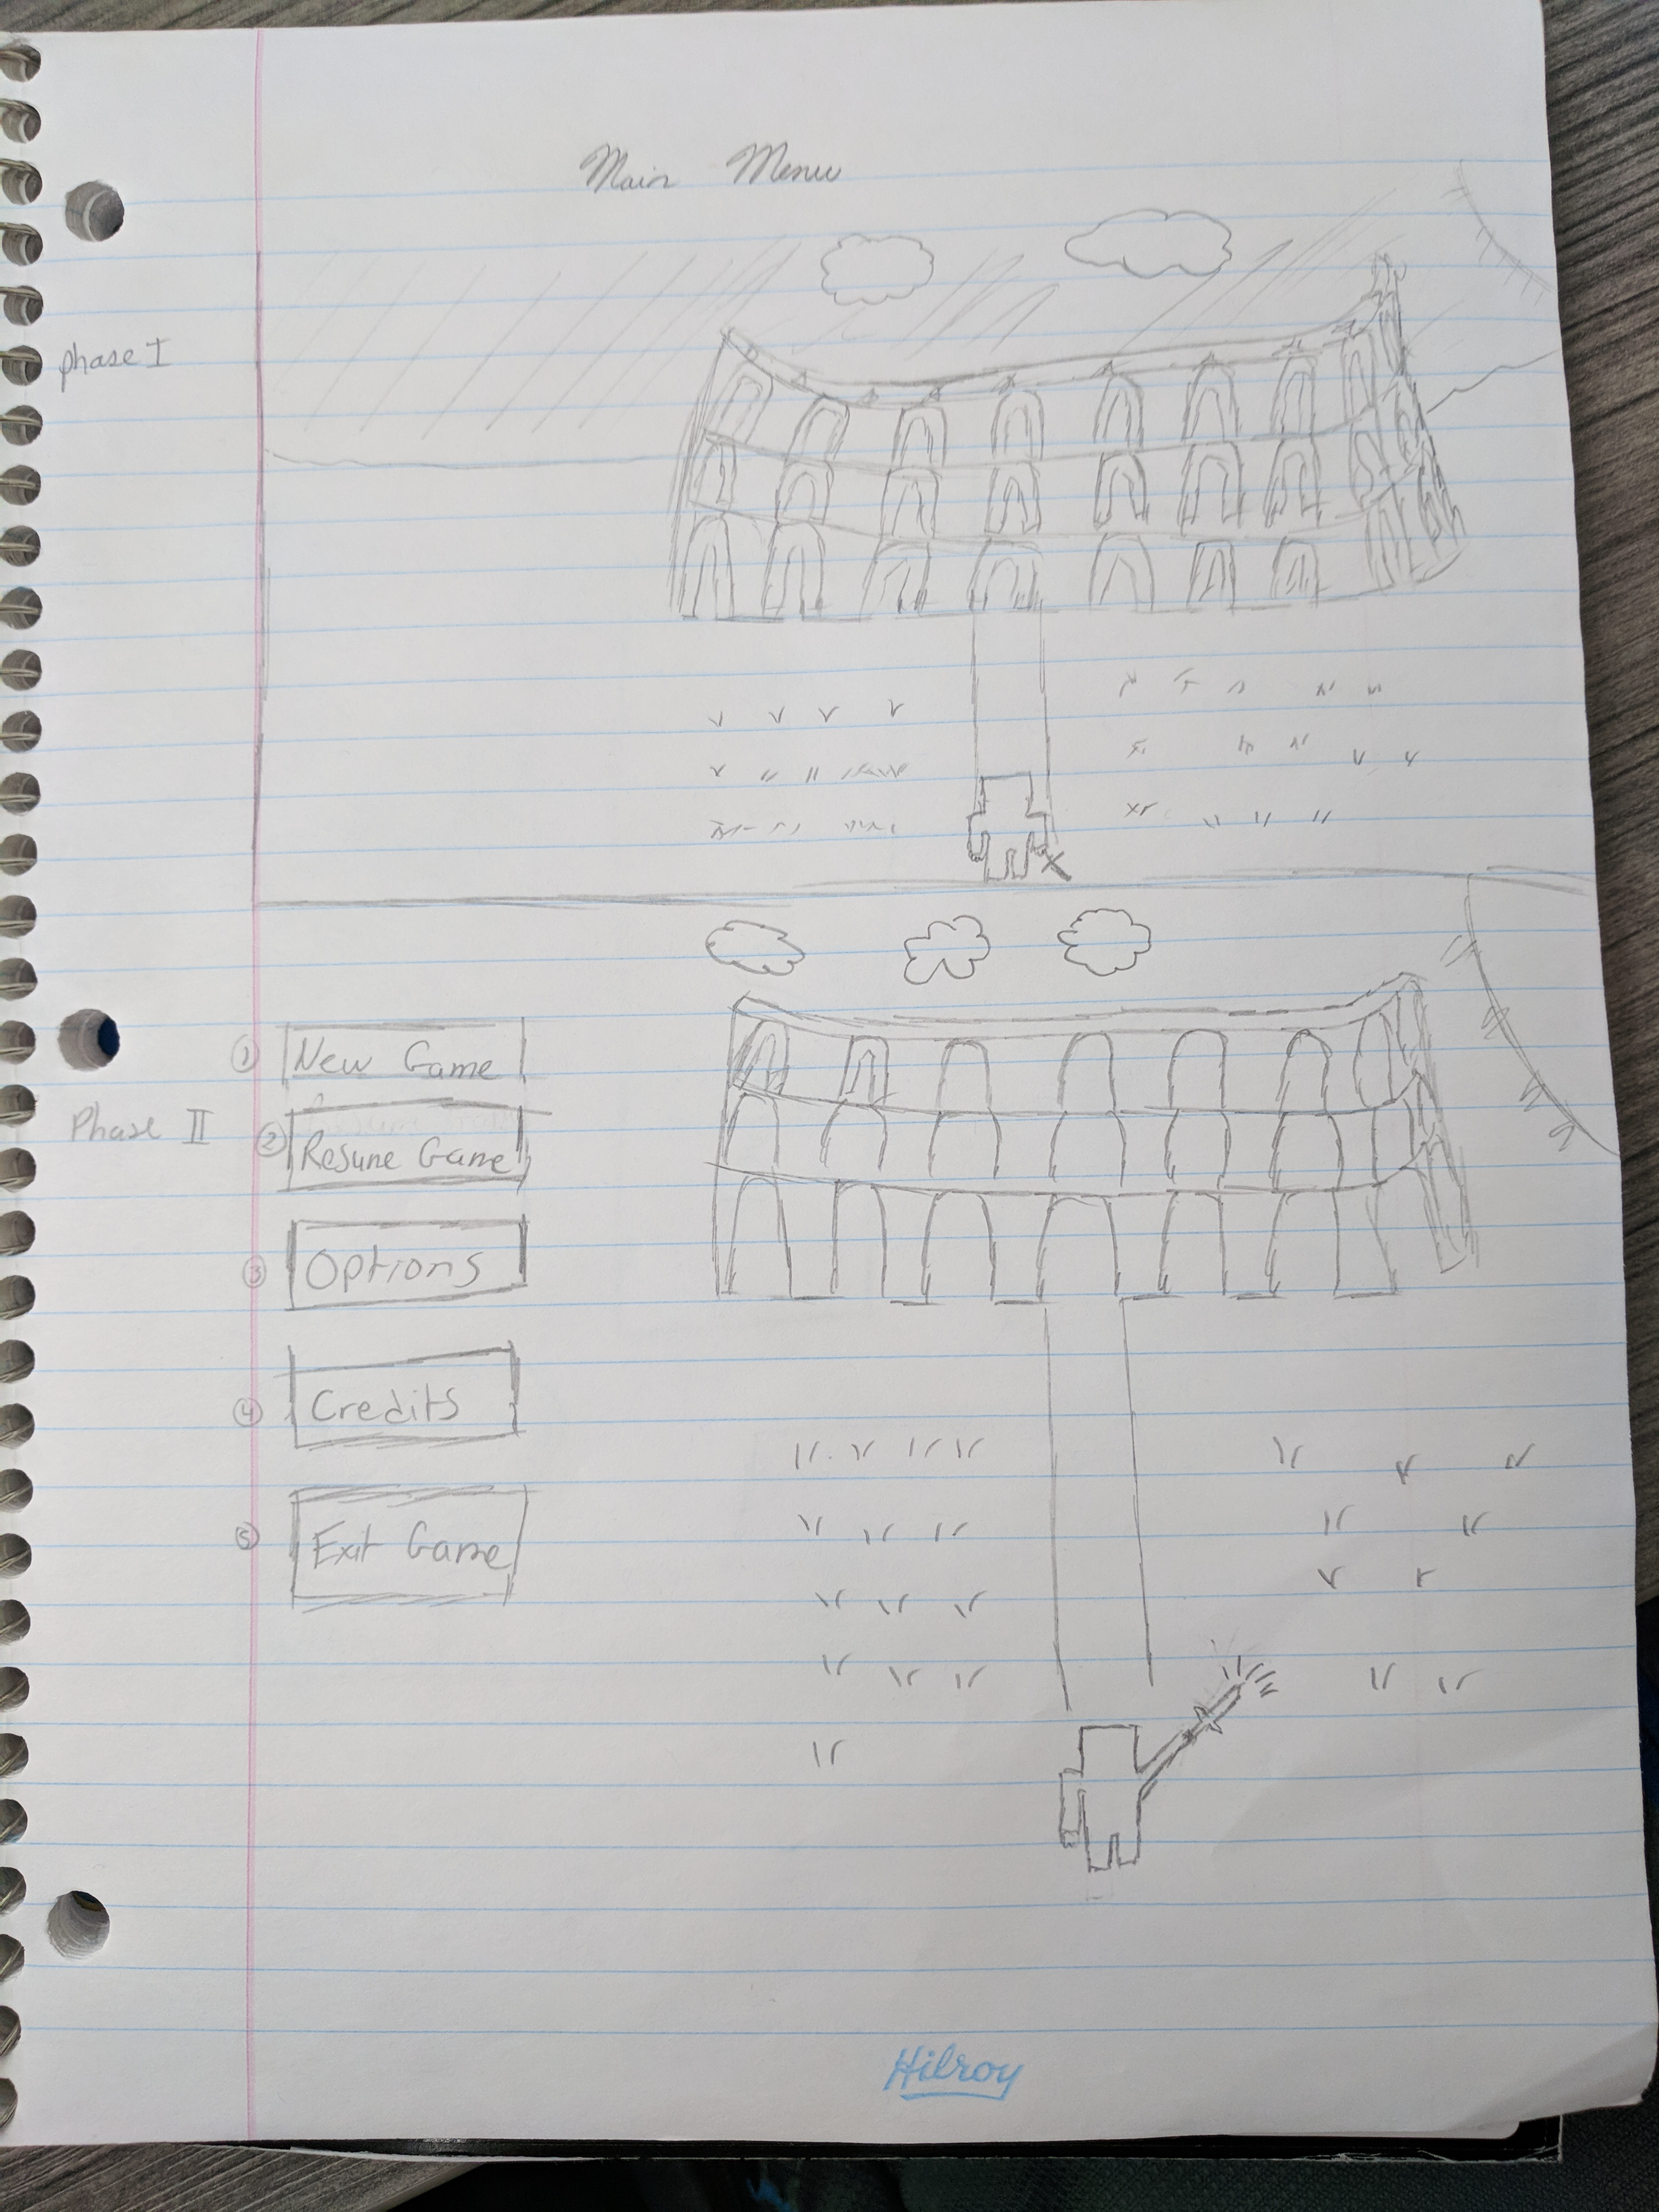 Main Menu
phase I
① New Game
Phase II
② Resume Game
③ Options
④ Credits
⑤ Exit Game
Hilroy